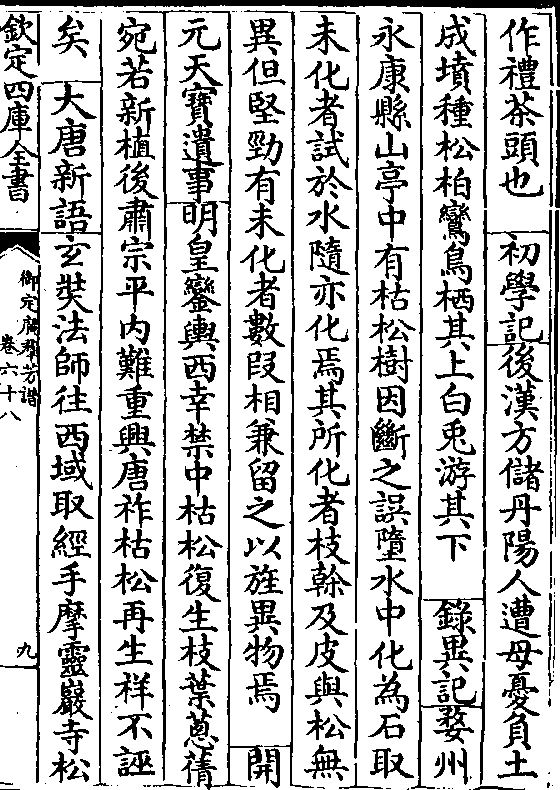 作禮茶頭也　初學記後漢方儲丹陽人遭母憂負土
成墳種松柏鸞鳥栖其上白兎游其下　錄異記婺州
永康縣山亭中有枯松樹因斷之誤墮水中化為石取
未化者試於水隨亦化焉其所化者枝榦及皮與松無
異但堅勁有未化者數段相兼留之以旌異物焉　開
元天寶遺事明皇鑾輿西幸禁中枯松復生枝葉蔥蒨
宛若新植後肅宗平内難重興唐祚枯松再生祥不誣
矣　大唐新語玄奘法師往西域取經手摩靈巖寺松
欽定四庫全書
御定廣羣芳譜
卷六十八
九